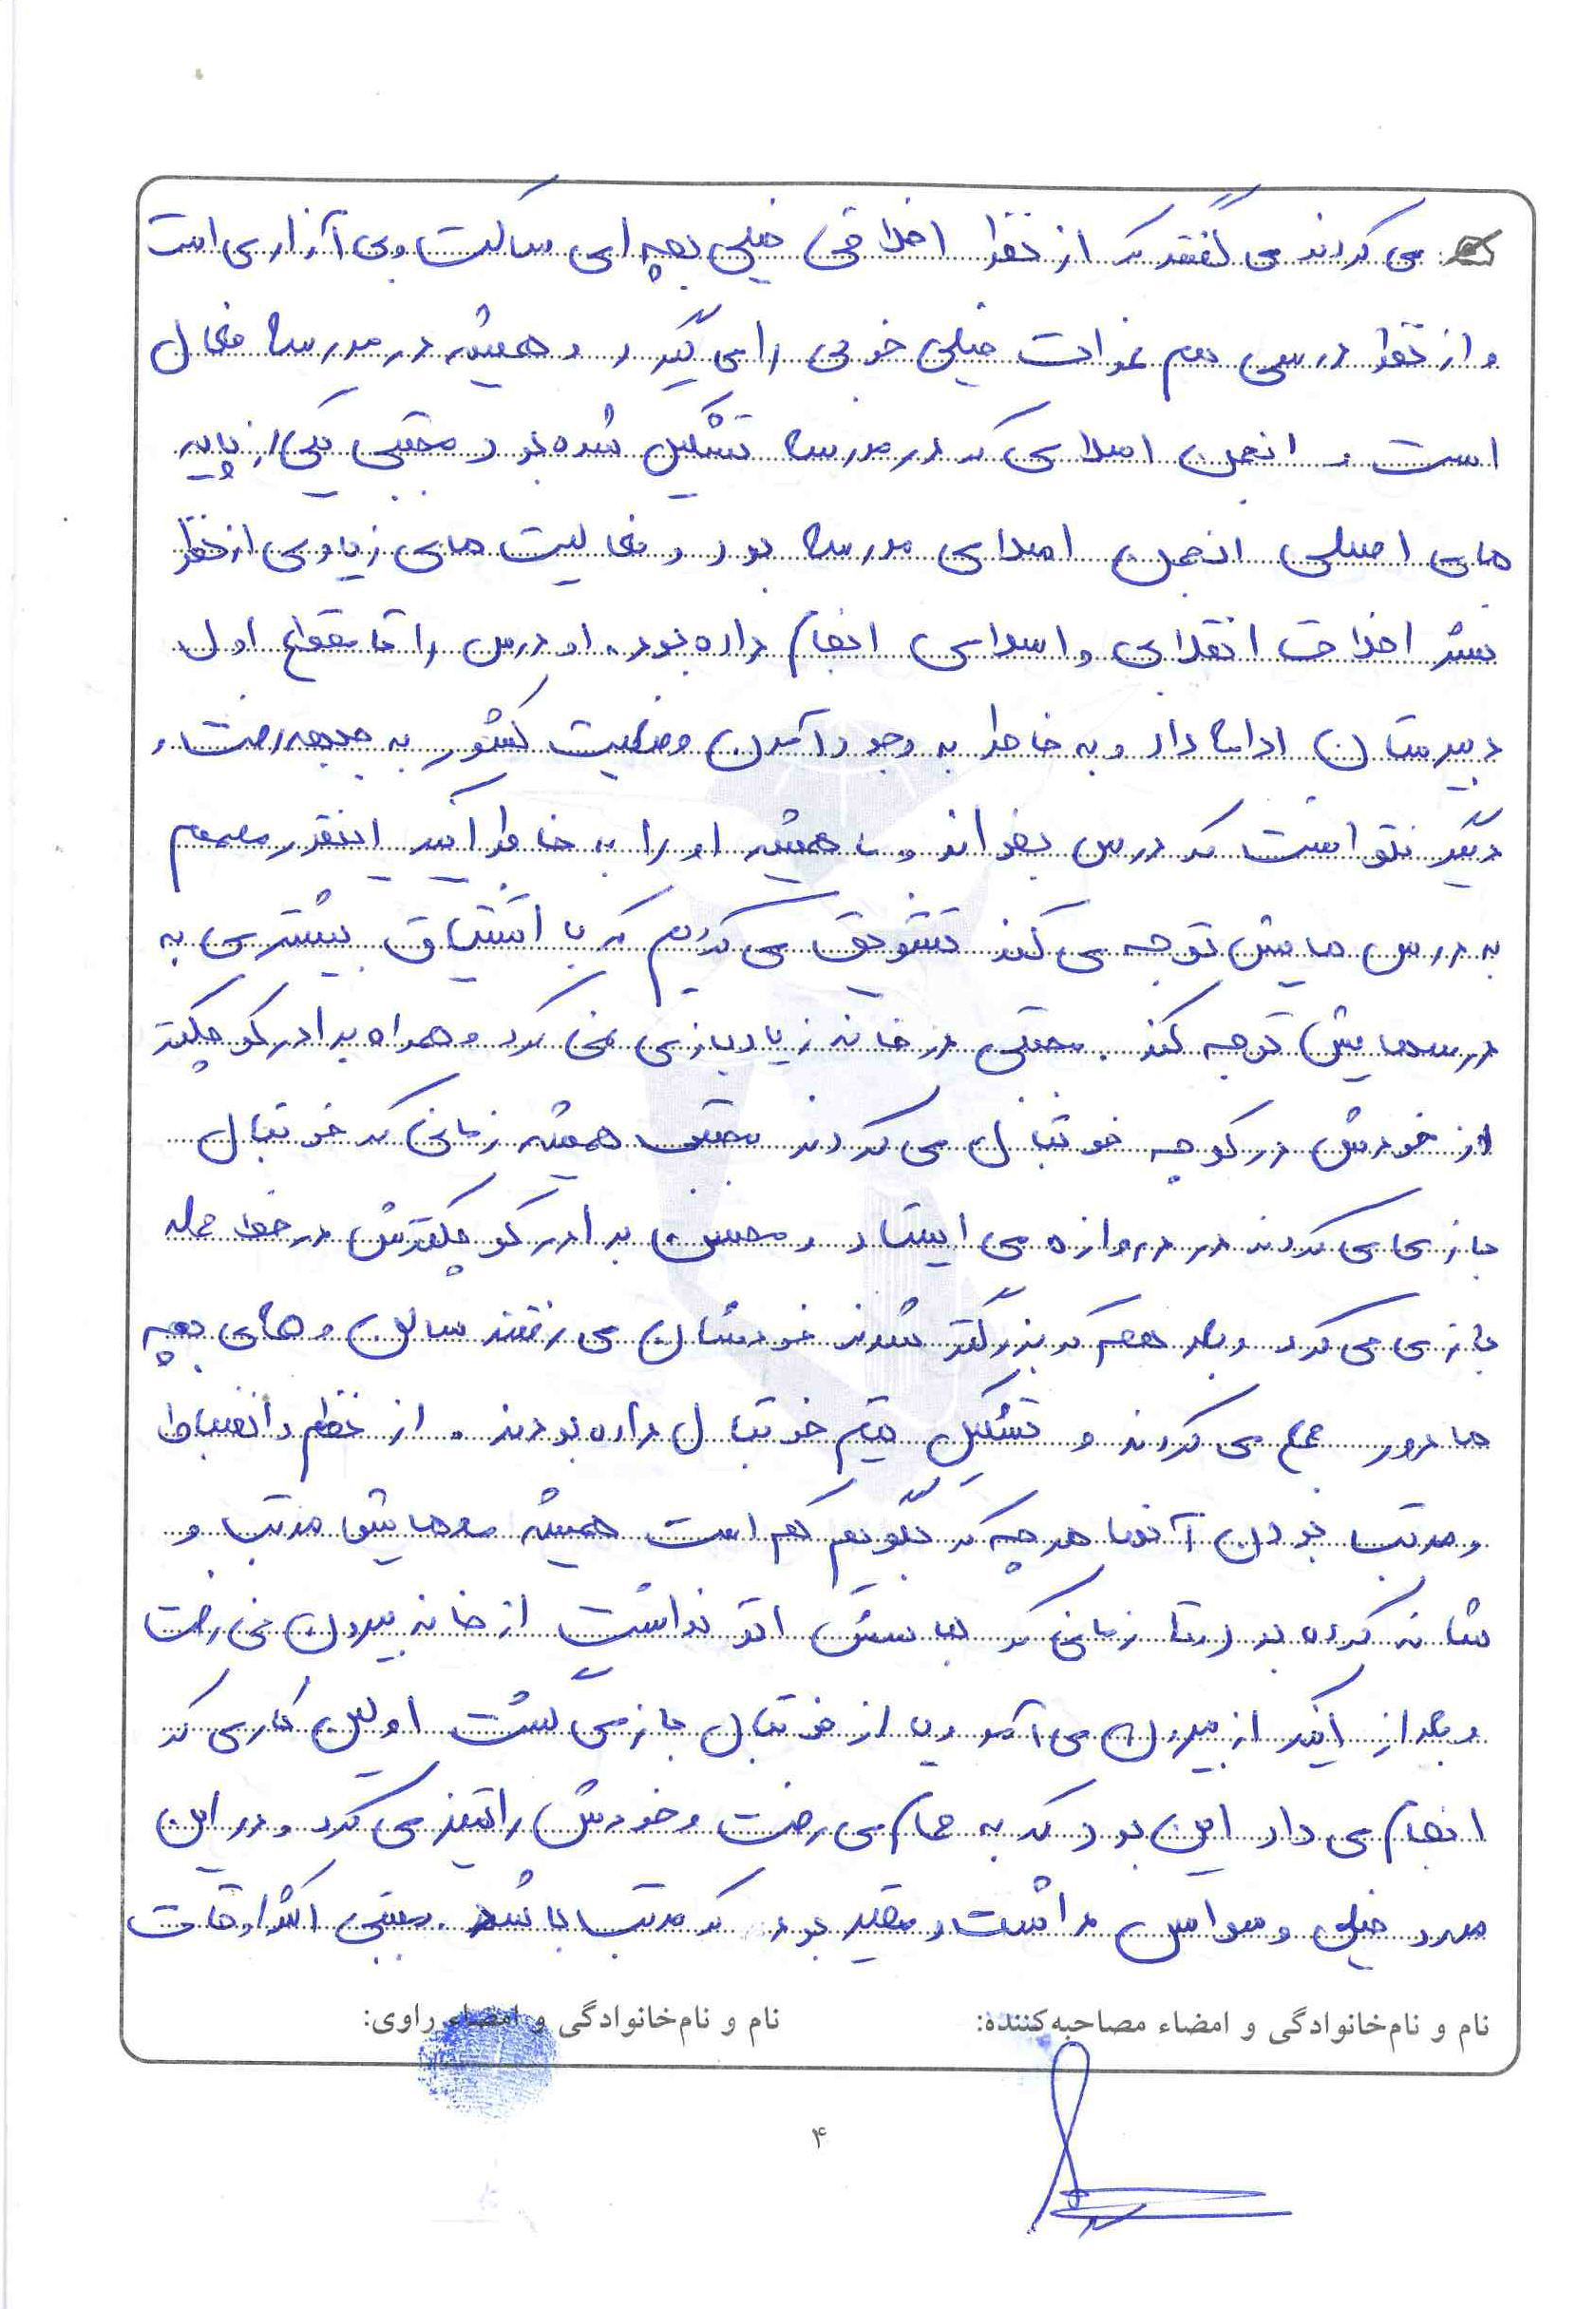 می کردند می گفتند که از نظر اخلاقی خیلی بچه ای ساکت و بی آزاری است
و از نظر درسی هم نمرات خیلی خوبی را می گیرد و همیشه در مدرسه فعال
است و انجمن اسلامی که در مدرسه تشکیل شده بود مجتبی یکی از پایه
های اصلی انجمن اسلامی مدرسه بود و فعالیت های زیادی از نظر
نشر اخلاق انقلابی و اسلامی انجام داده بود. او درس را تا مقطع اول
دبیرستان ادامه داد و به خاطر به وجود آمدن وضعیت کشور به جبهه رفت و
دیگر نتوانست که درس بخواند و همیشه او را به خاطر اینکه اینقدر مصمم
به درس هایش توجه می کند تشویق می کردیم که با اشتیاق بیشتری به
درسهایش توجه کند. مجتبی در خانه زیاد بازی نمی کرد و همراه برادر کوچکتر
از خودش در کوچه فوتبال می کردند مجتبی همیشه زمانی که فوتبال
بازی می کردند در دروازه می ایستاد و محسن برادر کوچکترش در خط حمله
بازی می کرد و بعد هم که بزرگتر شدند خودشان می رفتند سالن و های بچه
ها دور جمع می کردند و تشکیل تیم فوتبال داده بودند. از نظم و انضباط
و مرتب بودن آنها هر چه که بگویم کم است همیشه موهایش مرتب و
شانه کرده بود و تا زمانی که لباسش اتو نداشت از خانه بیرون نمی رفت
و بعد از اینکه از بیرون می آمد و یا از فوتبال باز می گشت اولین کاری که
انجام می داد این بود که به حمام می رفت و خودش را تمیز می کرد و در این
مورد خیلی وسواس داشت و مقید بود که مرتب باشد. مجتبی اکثر اوقات
نام و نام‌خانوادگی و امضاء مصاحبه‌کننده: نام و نام‌خانوادگی و امضاء راوی:
۴